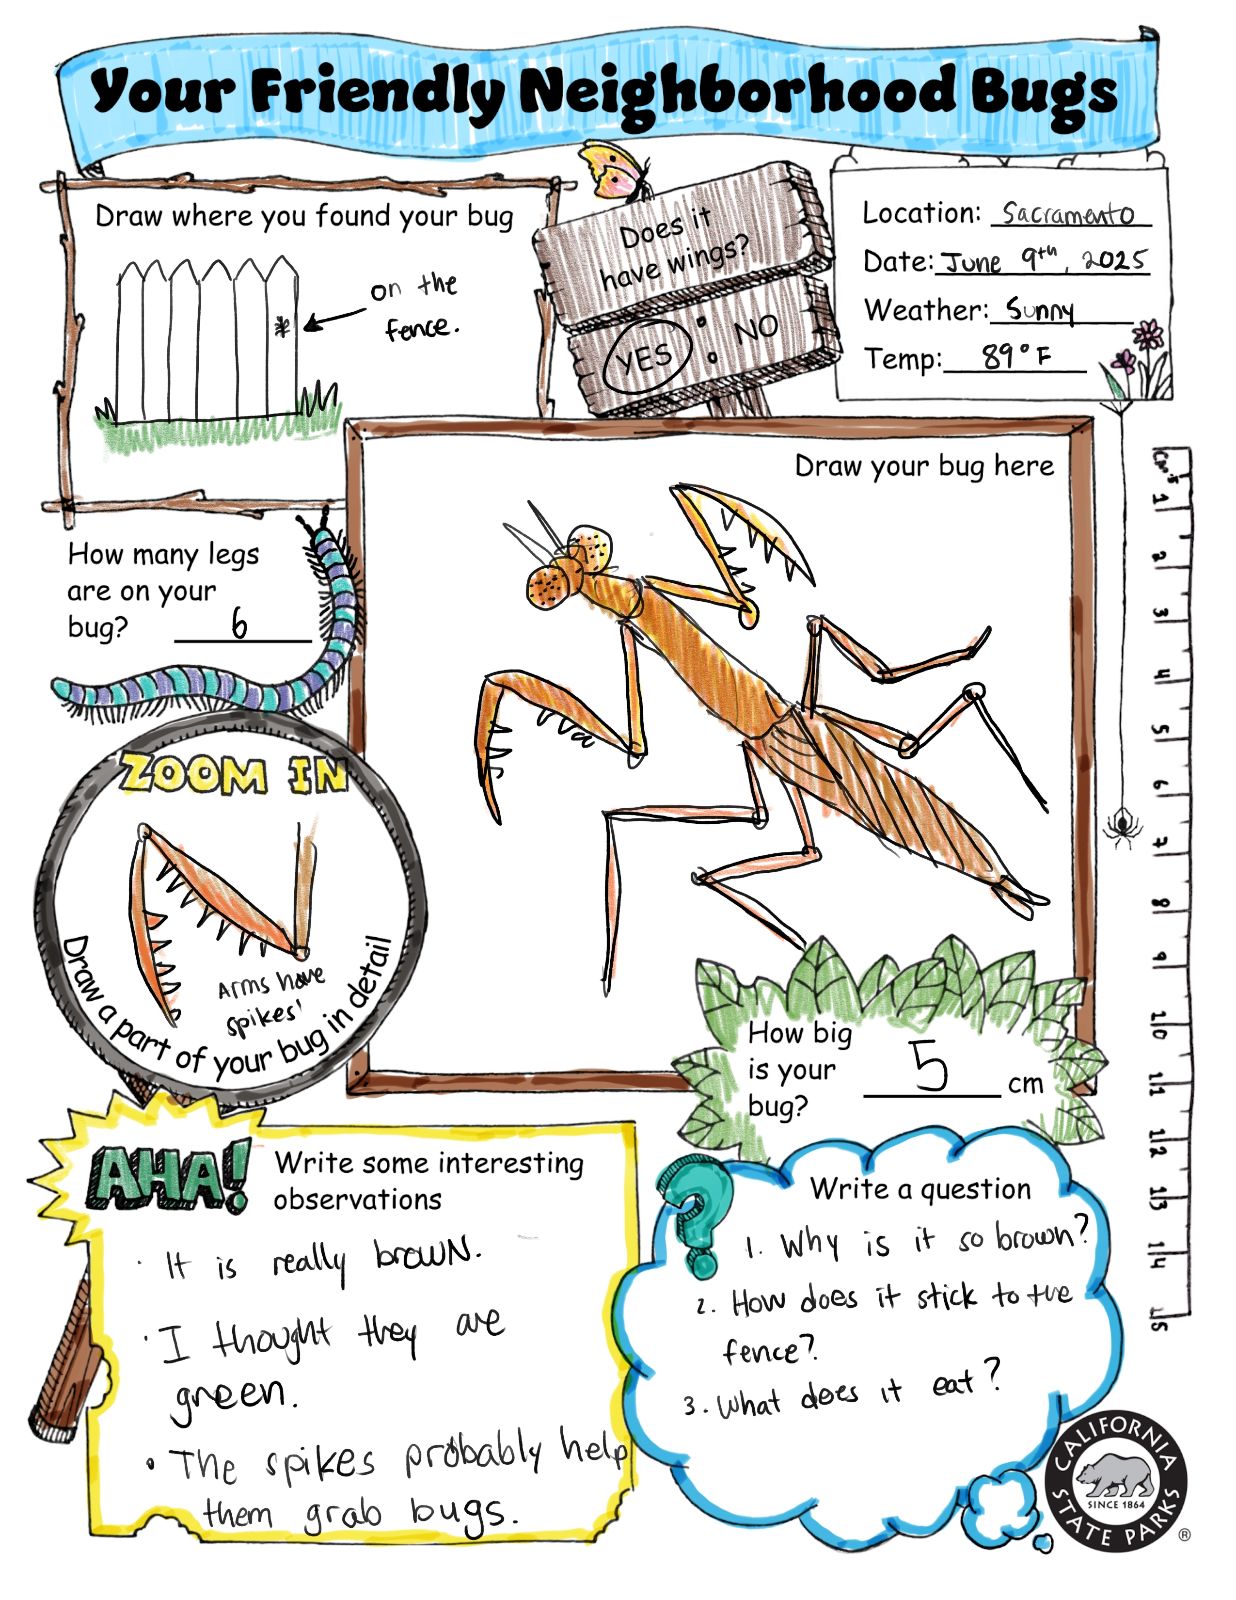 Your Friendly Neighborhood Bugs
Draw where you found your bug
on the
fence.
Does it
have wings?
YES : NO
Location: Sacramento
Date: June 9th, 2025
Weather: Sunny
Temp: 89°F
How many legs
are on your
bug? 6
Draw your bug here
ZOOM IN
Arms have
spikes!
Draw a part of your bug in detail
How big
is your
bug?
5 cm
cm's
1
2
3
4
5
6
7
8
9
10
11
12
13
14
15
AHA!
Write some interesting
observations
· It is really brown.
· I thought they are
green.
· The spikes probably help
them grab bugs.
?
Write a question
1. Why is it so brown?
2. How does it stick to the
fence?
3. What does it eat?
CALIFORNIA
SINCE 1864
STATE PARKS
®